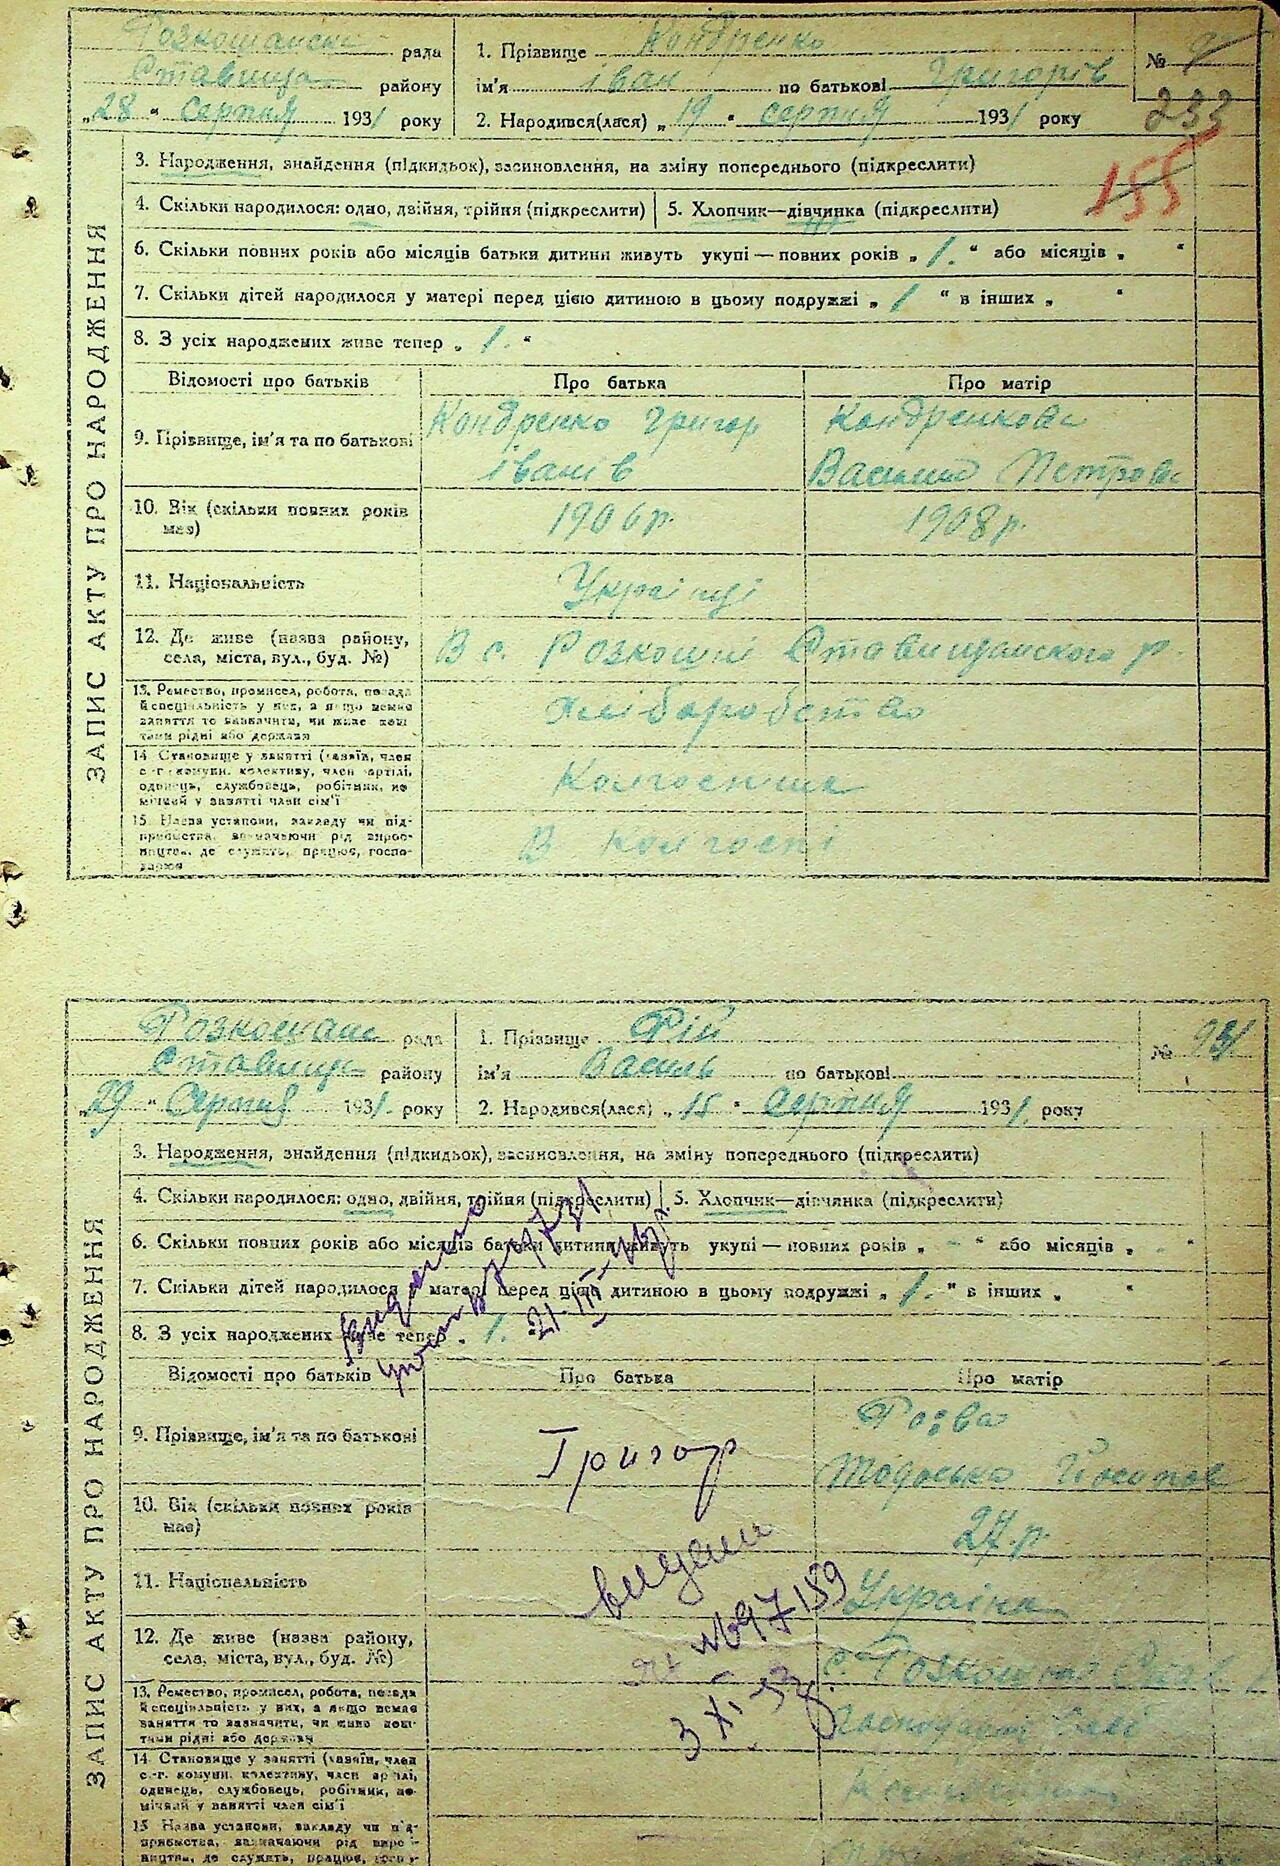 ЗАПИС АКТУ ПРО НАРОДЖЕННЯ
Розкошанська рада
Ставище району
„28“ серпня 1931 року
1. Прізвище Кондренко
ім'я іван по батькові Григорів
2. Народився(лася) „19“ серпня 1931 року
№
233
155
3. Народження, знайдення (підкидьок), засиновлення, на зміну попереднього (підкреслити)
4. Скільки народилося: одно, двійня, трійня (підкреслити)
5. Хлопчик—дівчинка (підкреслити)
6. Скільки повних років або місяців батьки дитини живуть укупі — повних років „1.“ або місяців „ “
7. Скільки дітей народилося у матері перед цією дитиною в цьому подружжі „1“ в інших „ “
8. З усіх народжених живе тепер „1.“
Відомості про батьків
Про батька
Про матір
9. Прізвище, ім'я та по батькові
Кондренко Григор
іванів
Кондренкова
Петрова
10. Вік (скільки повних років має)
1906р.
1908р.
11. Національність
Українці
12. Де живе (назва району,
села, міста, вул., буд. №)
В с. Розкошні Ставищанского р.
13. Ремество, промисел, робота, посада
й спеціяльність у них, а якщо немає
заняття то зазначити, чи живе кош-
тами рідні або держави
хліборобство
14. Становище у занятті (хазяїн, член
с.-г. комуни, колективу, член артілі,
одинець, службовець, робітник, по-
мічний у занятті член сім'ї
Колгоспник
15. Назва установи, закладу чи під-
приємства, зазначаючи рід вироб-
ництва, де служить, працює, госпо-
дарює
В колгоспі
ЗАПИС АКТУ ПРО НАРОДЖЕННЯ
Розкошан рада
Ставище району
„29“ Серпня 1931. року
1. Прізвище Рій
ім'я Василь по батькові
2. Народився(лася) „15“ Серпня 1931. року
№ 93
3. Народження, знайдення (підкидьок), засиновлення, на зміну попереднього (підкреслити)
4. Скільки народилося: одно, двійня, трійня (підкреслити)
5. Хлопчик—дівчинка (підкреслити)
6. Скільки повних років або місяців батьки дитини живуть укупі — повних років „-“ або місяців „-“
7. Скільки дітей народилося у матері перед цією дитиною в цьому подружжі „1.“ в інших „ “
8. З усіх народжених живе тепер „1.
Відомості про батьків
Про батька
Про матір
9. Прізвище, ім'я та по батькові
Григор
Тодоська
10. Вік (скільки повних років має)
27.р.
видан
№ 97159
3 XI-53
11. Національність
Українка
12. Де живе (назва району,
села, міста, вул., буд. №)
с. Розкошна Став
13. Ремество, промисел, робота, посада
й спеціяльність у них, а якщо немає
заняття то зазначити, чи живе кош-
тами рідні або держави
14. Становище у занятті (хазяїн, член
с.-г. комуни, колективу, член артілі,
одинець, службовець, робітник, по-
мічний у занятті член сім'ї
15 Назва установи, закладу чи під-
приємства, зазначаючи рід вироб-
ництва, де служить, працює, госпо-